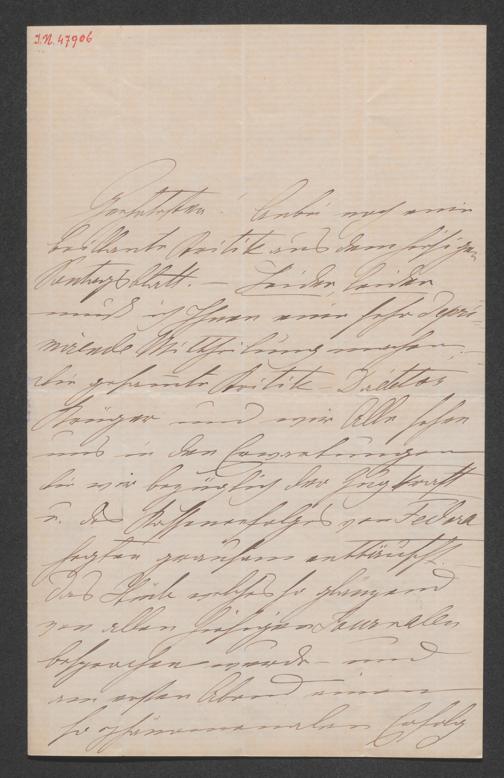 I.N. 47906
Verehrtester! Anbei noch eine
brillante Kritik aus dem hiesigen
Montagsblatt. — Leider, leider
muß ich Ihnen eine sehr depri-
mirende Mittheilung machen, —
die gesammte Kritik — Director
Krüger und wir Alle sehen
uns in den Erwartungen
die wir bezüglich der Zugkraft
u. des Kassenerfolges von Fedora
hegten grausam enttäuscht. —
Das Stück welches so glänzend
von allen hiesigen Journalen
besprochen wurde — und
am ersten Abend einen
so phänomenalen Erfolg